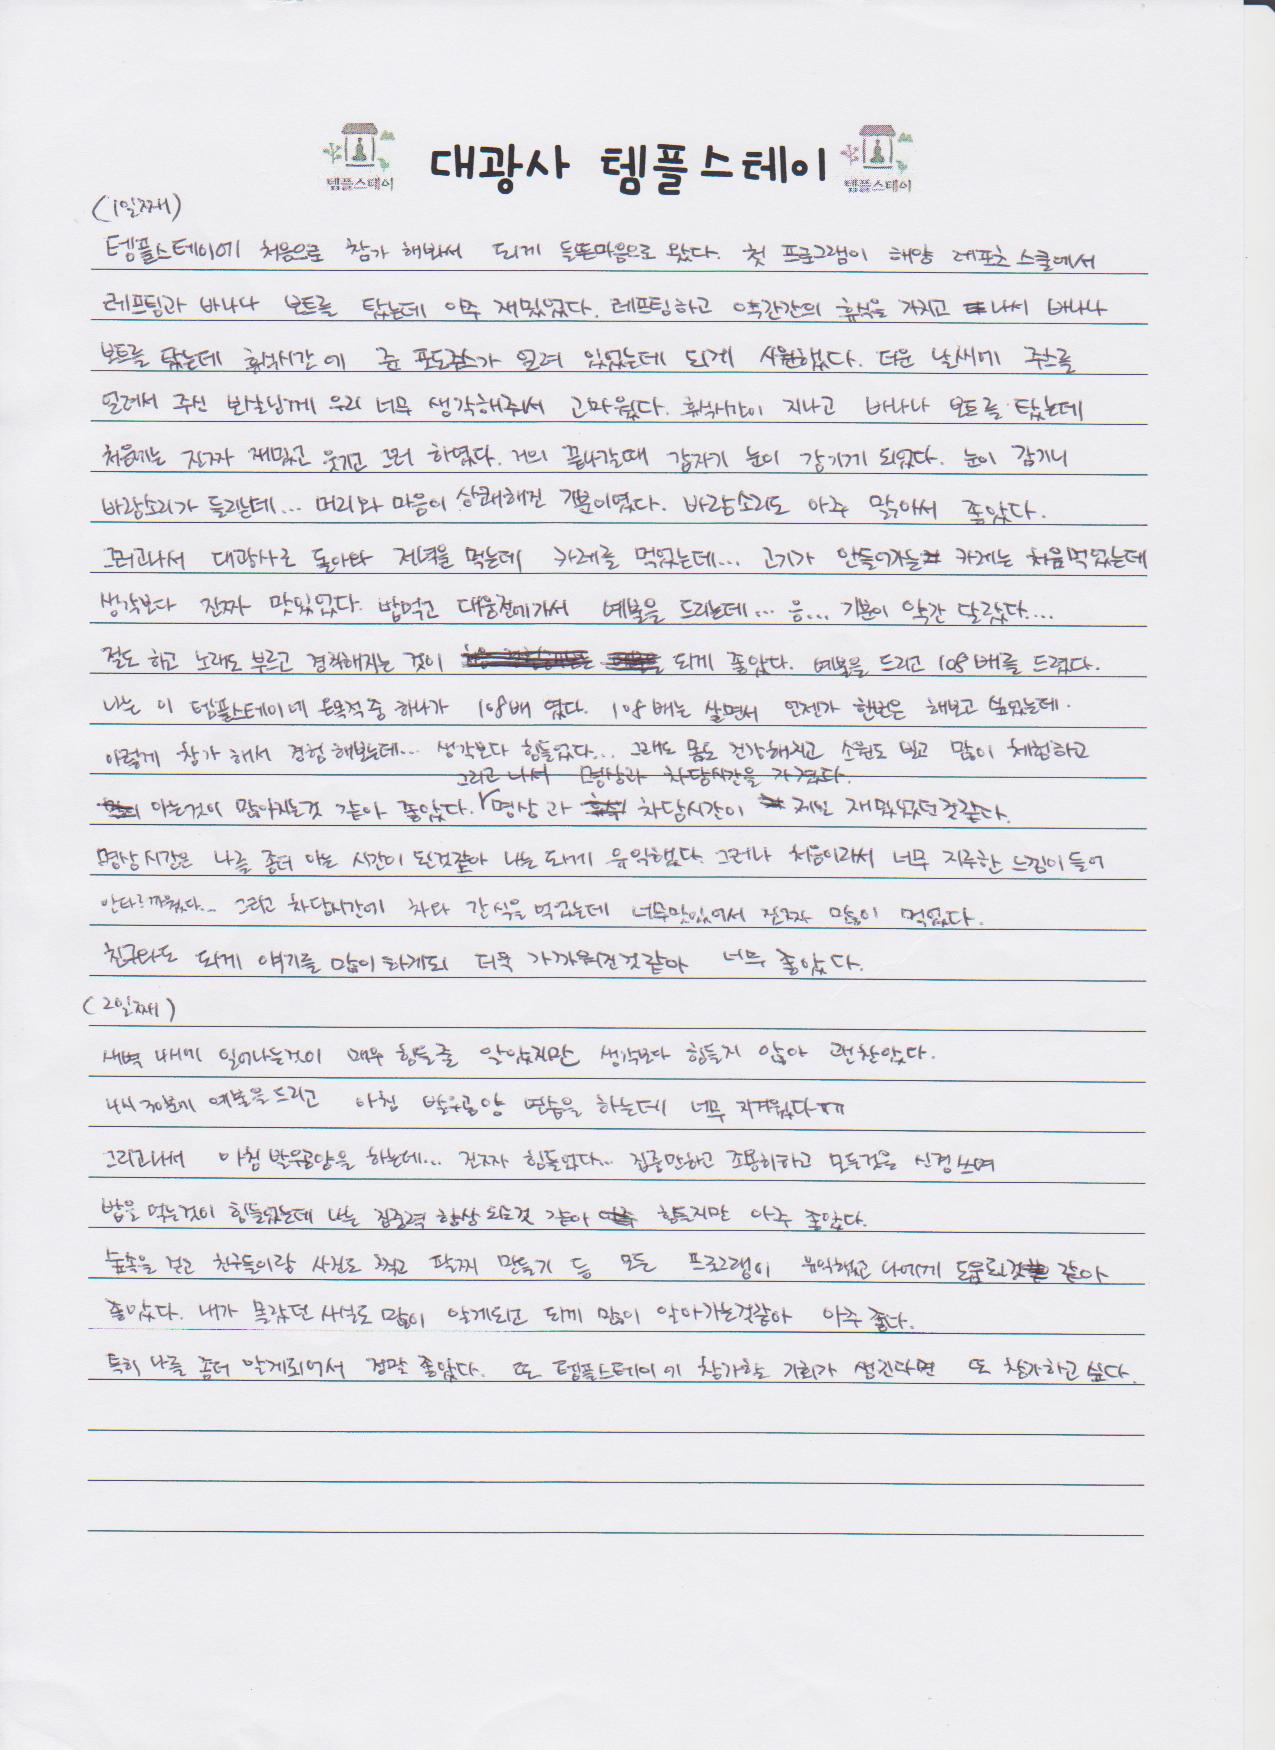 대광사 템플스테이
템플스테이
템플스테이
(1일째)
템플스테이에 처음으로 참가 해봐서 되게 들뜬마음으로 왔다. 첫 프로그램이 해양 레포츠 스쿨에서
레프팅과 바나나 보트를 탔는데 아주 재밌었다. 레프팅하고 약간간의 휴식을 가지고 나서 바나나
보트를 탔는데 휴식시간에 준 포도쥬스가 얼려 있었는데 되게 시원했다. 더운 날씨에 주스를
얼려서 주신 보살님께 우리 너무 생각해주셔서 고마웠다. 휴식시간이 지나고 바나나 보트를 탔는데
처음에는 진짜 재밌고 웃기고 그러 하였다. 거의 끝나갈때 갑자기 눈이 감기게 되었다. 눈이 감기니
바람소리가 들리는데... 머리와 마음이 상쾌해진 기분이였다. 바람소리도 아주 맑아서 좋았다.
그러고나서 대광사로 돌아와 저녁을 먹는데 카레를 먹었는데... 고기가 안들어가는 카레는 처음먹었는데
생각보다 진짜 맛있었다. 밥먹고 대웅전에가서 예불을 드리는데... 음... 기분이 약간 달랐다....
절도 하고 노래도 부르고 경척해지는 것이 되게 좋았다. 예불을 드리고 108배를 드렸다.
나는 이 템플스테이에 온목적중 하나가 108배 였다. 108배는 살면서 언젠가 한번은 해보고 싶었는데.
이렇게 참가 해서 경험 해봤는데... 생각보다 힘들었다... 그래도 몸도 건강해지고 소원도 빌고 많이 체험하고
그리고 나서 명상과 차담시간을 가졌다.
아는것이 많아지는것 같아 좋았다. 명상 과 차담시간이 제일 재밌었던것같다.
명상 시간은 나를 좀더 아는 시간이 된것같아 나는 되게 유익했다. 그러나 처음이라서 너무 지루한 느낌이 들어
안타까웠다... 그리고 차담시간에 차와 간식을 먹었는데 너무맛있어서 진짜 많이 먹었다.
친구와도 되게 얘기를 많이 하게되 더욱 가까워진것같아 너무 좋았다.
(2일째)
새벽 4시에 일어나는것이 매우 힘들줄 알았지만 생각보다 힘들지 않아 괜찮았다.
4시 30분에 예불을 드리고 아침 발우공양 연습을 하는데 너무 지겨웠다ㅠㅠ
그리고나서 아침 발우공양을 하는데... 진짜 힘들었다... 집중만하고 조용히하고 모든것을 신경쓰며
밥을 먹는것이 힘들었는데 나는 집중력 향상 되는것 같아 힘들지만 아주 좋았다.
숲속을 걷고 친구들이랑 사진도 찍고 팔찌 만들기 등 모든 프로그램이 유익했고 나에게 도움되것 같아
좋았다. 내가 몰랐던 사실도 많이 알게되고 되게 많이 알아가는것같아 아주 좋다.
특히 나를 좀더 알게되어서 정말 좋았다. 또 템플스테이에 참가할 기회가 생긴다면 또 참가하고 싶다.